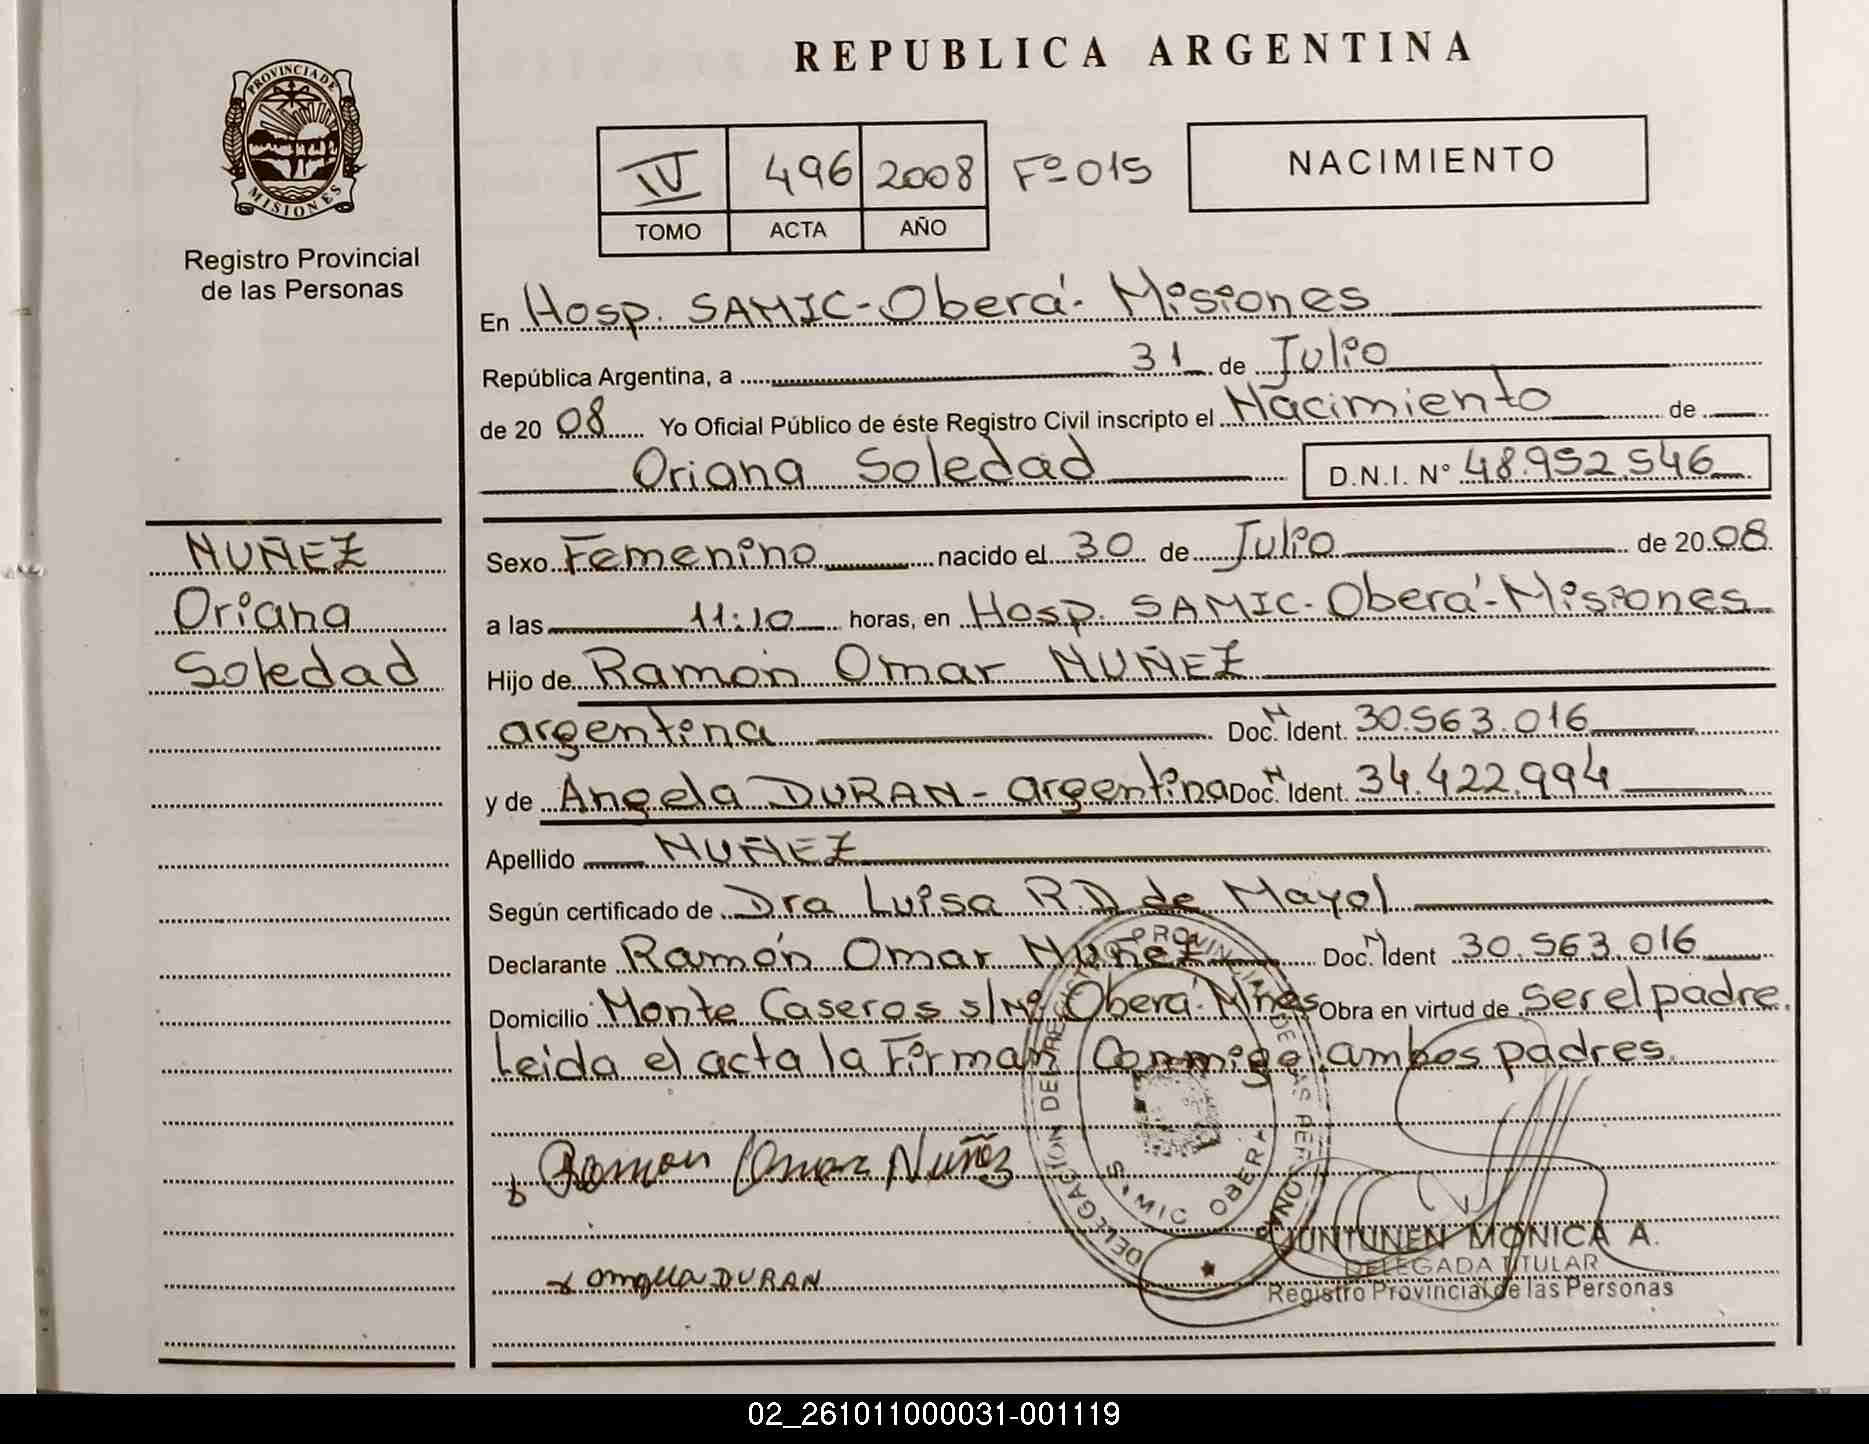 REPUBLICA ARGENTINA
PROVINCIA DE
MISIONES
Registro Provincial
de las Personas
IV 496 2008 Fº 015
TOMO ACTA AÑO
NACIMIENTO
En Hosp. SAMIC-Oberá- Misiones
República Argentina, a 31 de Julio
de 20 08 Yo Oficial Público de éste Registro Civil inscripto el Nacimiento de
Oriana Soledad D.N.I. Nº 48.952.546
NUÑEZ
Oriana
Soledad
Sexo Femenino nacido el 30 de Julio de 20 08
a las 11:10 horas, en Hosp. SAMIC-Oberá-Misiones
Hijo de Ramón Omar NUÑEZ
argentina Doc. N Ident. 30.563.016
y de Angela DURAN - argentina Doc. N Ident. 34.422.994
Apellido NUÑEZ
Según certificado de Dra Luisa R.D de Mayol
Declarante Ramón Omar Nuñez Doc. N Ident 30.563.016
Domicilio Monte Caseros s/Nº Oberá-Mnes Obra en virtud de ser el padre.
Leida el acta la Firman Conmigo ambos padres.
Ramon Omar Nuñez
DURAN
DELEGACIÓN DEL REGISTRO PROVINCIAL DE LAS PERSONAS
SAMIC OBERA
JUNTUNEN MONICA A.
DELEGADA TITULAR
Registro Provincial de las Personas
02_261011000031-001119